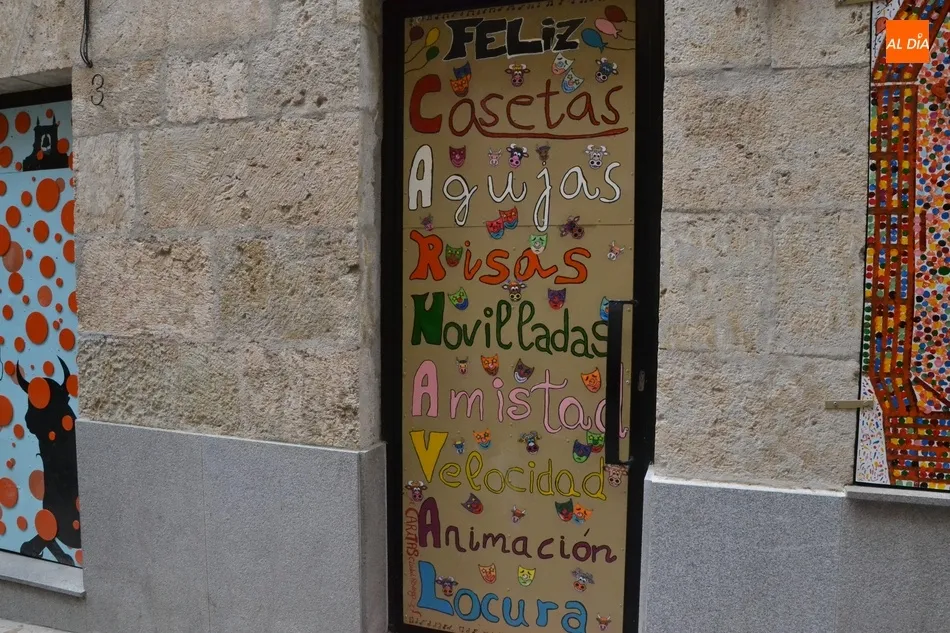 AL DÍA
3
FELIZ
Casetas
Agujas
Risas
Novilladas
Amistad
Velocidad
Animación
Locura
CARITAS